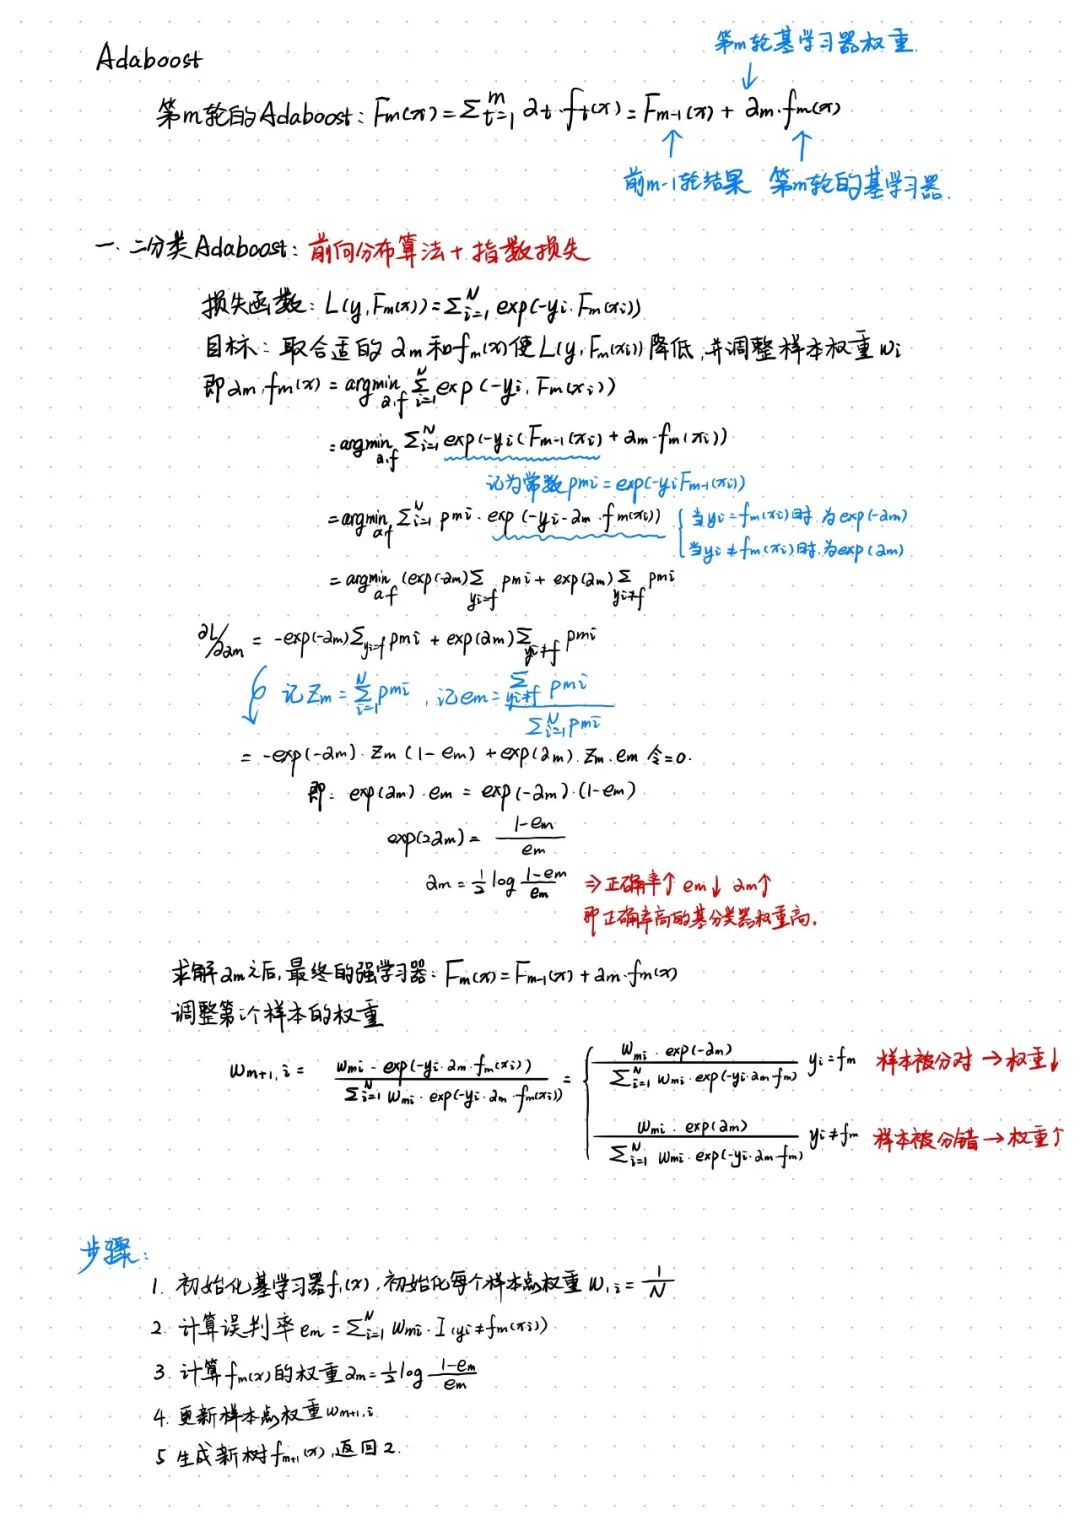 Adaboost
第m轮基学习器权重.
第m轮的Adaboost: Fm(x) = Σ_{t=1}^{m} αt·ft(x) = Fm-1(x) + αm·fm(x)
前m-1轮结果 第m轮的基学习器.
一. 二分类Adaboost: 前向分布算法 + 指数损失
损失函数: L(y, Fm(x)) = Σ_{i=1}^{N} exp(-yi·Fm(xi))
目标: 取合适的 αm 和 fm(x) 使 L(y, Fm(xi)) 降低, 并调整样本权重 wi
即 αm, fm(x) = argmin_{α,f} Σ_{i=1}^{N} exp(-yi, Fm(xi))
= argmin_{α,f} Σ_{i=1}^{N} exp(-yi(Fm-1(xi) + αm·fm(xi))
记为常数 pmi = exp(-yiFm-1(xi))
= argmin_{α,f} Σ_{i=1}^{N} pmi · exp(-yi-αm·fm(xi)) { 当yi = fm(xi)时. 为exp(-αm)
当yi ≠ fm(xi)时. 为exp(αm)
= argmin_{α,f} (exp(-αm) Σ_{yi=f} pmi + exp(αm) Σ_{yi≠f} pmi
∂L/∂αm = -exp(-αm) Σ_{yi=f} pmi + exp(αm) Σ_{yi≠f} pmi
记 Zm = Σ_{i=1}^{N} pmi, 记 em = Σ_{yi≠f} pmi / Σ_{i=1}^{N} pmi
= -exp(-αm)·Zm(1-em) + exp(αm)·Zm·em 令=0.
即: exp(αm)·em = exp(-αm)·(1-em)
exp(2αm) = (1-em)/em
αm = 1/2 log (1-em)/em ⇒ 正确率↑ em↓ αm↑
即正确率高的基分类器权重高.
求解αm之后, 最终的强学习器: Fm(x) = Fm-1(x) + αm·fm(x)
调整第i个样本的权重
wm+1,i = wmi·exp(-yi·αm·fm(xi)) / Σ_{i=1}^{N} wmi·exp(-yi·αm·fm(xi)) = { wmi·exp(-αm) / Σ_{i=1}^{N} wmi·exp(-yi·αm·fm) yi=fm 样本被分对 → 权重↓
wmi·exp(αm) / Σ_{i=1}^{N} wmi·exp(-yi·αm·fm) yi≠fm 样本被分错 → 权重↑
步骤:
1. 初始化基学习器f1(x), 初始化每个样本点权重 w1i = 1/N
2. 计算误判率 em = Σ_{i=1}^{N} wmi·I(yi≠fm(xi))
3. 计算fm(x)的权重 αm = 1/2 log (1-em)/em
4. 更新样本点权重wm+1,i
5 生成新树fm+1(x), 返回2.